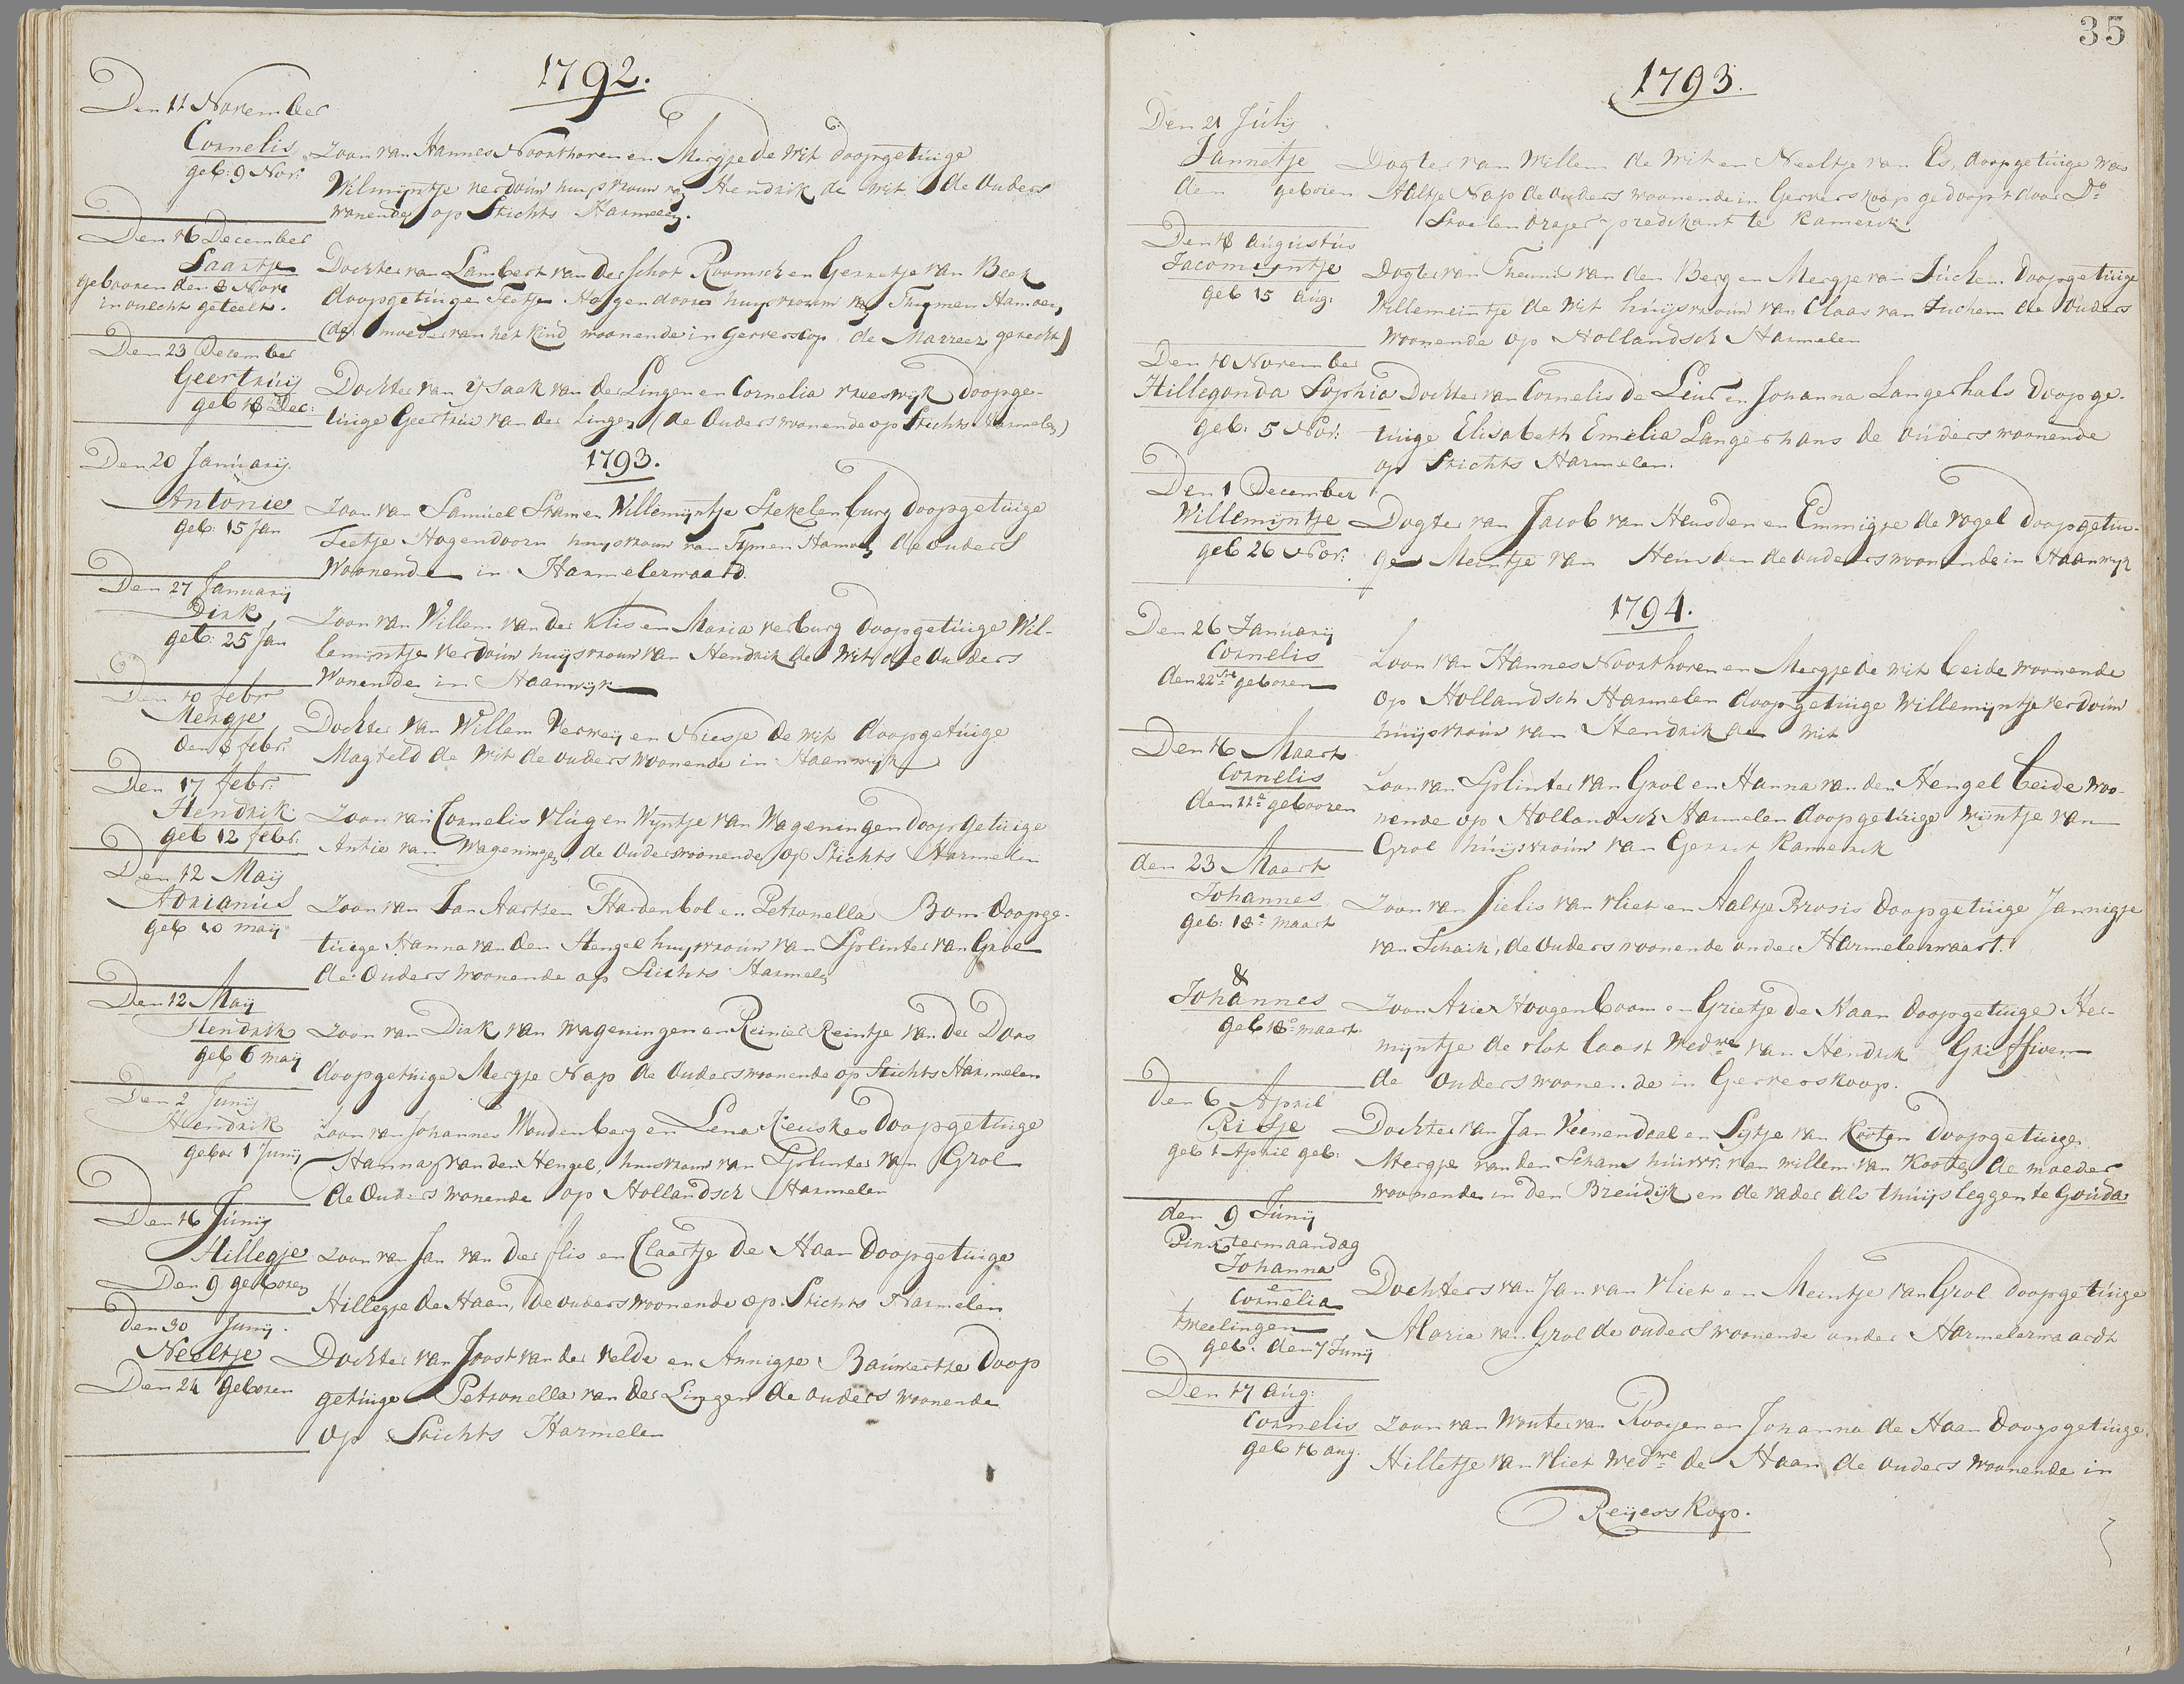 1792.
Den 11 November
Cornelis
geb: 9 Nov:
Zoon van Hannes Noorthoven en Mergje de Wit doopgetuige
Wilmijntje verdouw huijsvrouw van Hendrik de Wit de Ouders
wonende op Stichts Harmelen.
Den 16 December
Saartje
gebooren den 8 Nove
in onecht geteelt.
Dochter van Lambert van der Schot Roomsch en Gerretje van Beek
doopgetuige Feetje Hogendoorn huijsvrouw van Thijmen Hamoen,
(de moeder van het kind woonende in Gerverscop de Marreez gerecht)
Den 23 December
Geertruij
geb 18 Dec:
Dochter van ijsaak van der Lingen en Cornelia vreeswijk doopge-
tuige Geertrui van der Lingen (de Ouders woonende op Stichts Harmelen)
1793.
Den 20 Januarij
Antonie
geb: 15 Jan
Zoon van Samuel Stam en Willemijntje Stekelenburg doopgetuige
Feetje Hogendoorn huijsvrouw van Tijmen Hamoen de ouders
Woonende in Harmelerwaard.
Den 27 Januarij
Dirk
geb: 25 Jan
Zoon van Willem van der Klis en Maria verburg doopgetuige Wil-
lemijntje Verdouw huijsvrouw van Hendrik de Wit de ouders
Wonende in Haanwijk
Den 10 febr
Mergje
den 8 febr:
Dochter van Willem Verweij en Niesje de wit doopgetuige
Magteld de Wit de ouders woonende in Haanwijk
Den 17 febr:
Hendrik
geb 12 febr:
Zoon van Cornelis Vlug en Wijntje van Wageningen doopgetuige
Antie van Wageningen, de Ouders woonende op Stichts Harmelen
Den 12 Maij
Adrianus
geb 10 maij
Zoon van Jan Aartsen Hardenbol en Petronella Bom doopge-
tuige Hanna van den Hengel huijsvrouw van Splinter van Grol
de Ouders woonende op Stichts Harmelen
Den 12 Maij
Hendrik
geb 6 maij
Zoon van Dirk van Wageningen en Reinier Reintje van der Does
doopgetuige Mergje Nap de Ouders woonende op Stichts Harmelen
Den 2 Junij
Hendrik
gebor 1 Junij
Zoon van Johannes Woudenberg en Lena Keuskes Doopgetuige
Hanna van den Hengel, huisvrouw van Splinter van Grol
de Ouders wonende op Hollandsch Harmelen
Den 16 Junij
Hillegje
Den 9 geboren
Zoon van Jan van der flis en Claartje de Haan Doopgetuige
Hillegje de Haan, de ouders woonende op Stichts Harmelen
den 30 Junij.
Neeltje
Den 24 Geboren
Dochter van Joost van der velde en Annigje Bauwertse Doop
getuige Petronella van der Lingen de ouders woonende
op Stichts Harmelen
35
1793.
Den 21 Julij
Jannetje
den geboren
Dogter van Willem de Wit en Neeltje van Es, doopgetuige was
Aaltje Nap de ouders woonende in Gerverskoop gedoopt door Ds
Stoelendrajer predikant te Kamerik
Den 18 augustus
Jacomijntje
geb 15 aug:
Dogter van Theunis van den Berg en Mergje van Luchem Doopgetuige
Willemeintje de Wit huijsvrouw van Claas van Luchem de Ouders
Woonende op Hollandsch Harmelen
Den 10 November
Hillegonda Sophia
geb: 5 Nov:
Dochter van Cornelis de Leur en Johanna Langerhals Doopge-
tuige Elisabeth Emelia Langerhans de ouders woonende
op Stichts Harmelen.
Den 1 December
Willemijntje
geb 26 Nov:
Dogter van Jacob van Heusden en Emmigje de vogel Doopgetui-
ge Meintje van Heusden de ouders woonende in Haanwijk
1794.
Den 26 Januarij
Cornelis
den 22ste geboren
Zoon van Hannes Noorthoven en Mergje de wit beide woonende
op Hollandsch Harmelen doopgetuige Willemijntje verdouw
huijsvrouw van Hendrik de Wit
Den 16 Maart
Cornelis
den 11e gebooren
Zoon van Splinter van Grol en Hanna van den Hengel beide woo-
nende op Hollandsch Harmelen doopgetuige Wijntje van
Grol huijsvrouw van Gerrit Kamerik
den 23 Maart
Johannes
Geb: 18e maart
Zoon van Jielis van vliet en Aaltje Brosis Doopgetuige Jannigje
van Schaik, de Ouders woonende onder Harmelerwaart.
&
Johannes
geb 18e maart
Zoon Arie Hoogenboom en Grietje de Haan doopgetuige Her-
mijntje de vlot laast Wedwe van Hendrik Griffioen
de Ouders woonende in Gerverskoop.
den 6 April
Pietje
geb 1 April geb:
Dochter van Jan Veenendaal en Sijtje van Kooten Doopgetuige
Mergje van den Schans huisvr: van willem van Kooten de moeder
woonende in den Breudijk en de vader als thuijs leggen te Gouda
den 9 Junij
Pinxtermaandag
Johanna
en
Cornelia
tweelingen
geb: den 7 Junij
Dochters van Jan van Vliet en Meintje van Grol doopgetuige
Maria van Grol de ouders woonende onder Harmelerwaardt
Den 17 aug:
Cornelis
geb 16 aug.
Zoon van Wouter van Rooijen en Johanna de Haan Doopsgetuige
Hilletje van vliet Wedwe de Haan de ouders woonende in
Reijerskop.